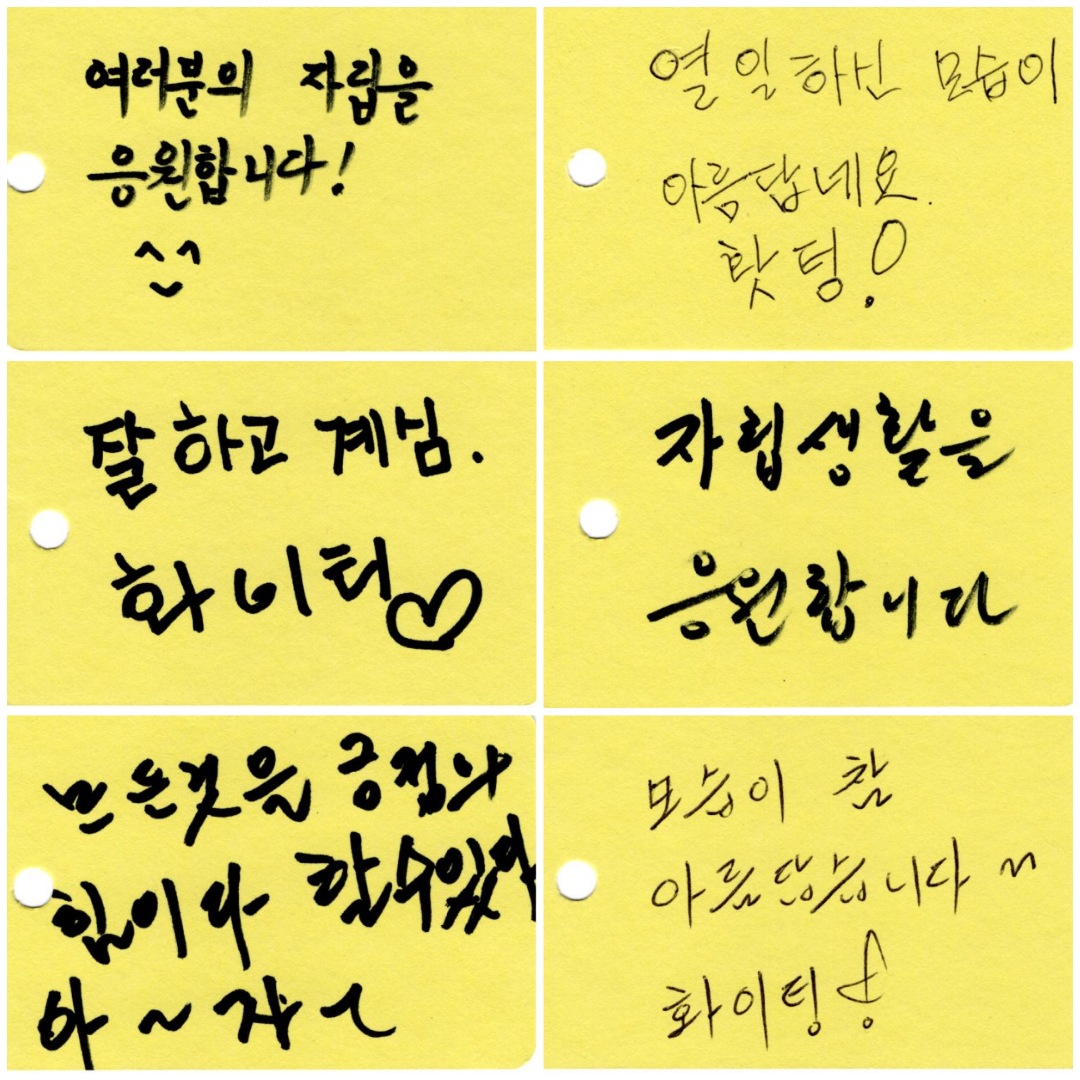 여러분의 자립을
응원합니다!
^^
열일하신 모습이
아름답네요.
홧팅!
잘하고 계심.
화이팅♡
자립생활을
응원합니다
모든것을 긍정의
힘이다 할수있다
아~자~
모습이 참
아름답습니다 ~
화이팅!